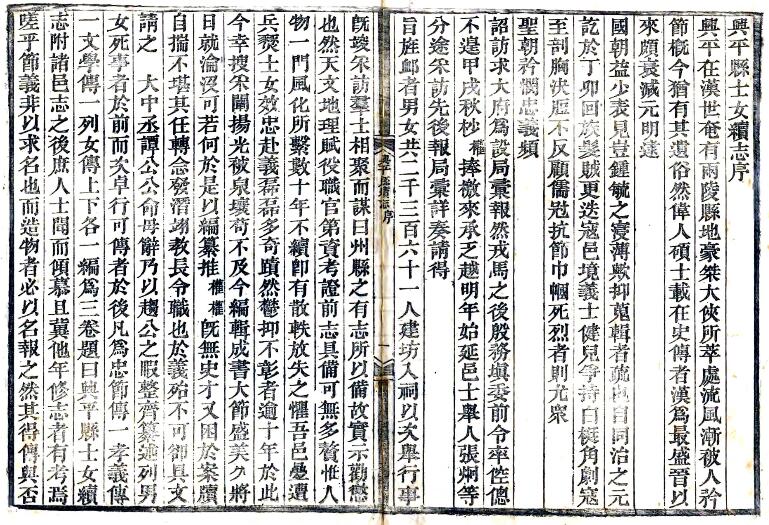 興平縣士女續志序
興平在漢世奄有兩陵縣地豪桀大俠所萃處流風漸被人矜
節概今猶有其遺俗然偉人碩士載在史傳者漢爲最盛晉以
來頗衰減元明迄
國朝益少表見豈鍾毓之寖薄歟抑蒐輯者疏也自同治之元
訖於丁卯回族髮賊更迭寇邑境義士健兒爭持白梃角劇寇
至剖胸決脰不反顧儒冠抗節巾幗死烈者則尤衆
聖朝矜憫忠義頻
詔訪求大府爲設局彙報然戎馬之後殷務填委前令率倥傯
不遑甲戌秋杪權捧檄來承乏越明年始延邑士舉人張炯等
分途采訪先後報局彙詳奏請得
旨旌卹者男女共二千三百六十一人建坊入祠以次舉行事
旣竣采訪羣士相聚而謀曰州縣之有志所以備故實示勸懲
也然天文地理賦役職官第資考證前志具備可無多贅惟人
物一門風化所繫數十年不續卽有散軼放失之懼吾邑疊遭
兵燹士女效忠赴義磊磊多奇蹟然鬱抑不彰者逾十年於此
今幸搜采闡揚光被泉壤苟不及今編輯成書大節盛美久將
日就淪沒可若何於是以編纂推權權旣無史才又困於案牘
自揣不堪其任轉念發潛翊教長令職也於義殆不可卻具文
請之　大中丞譚公公命毋辭乃以趨公之暇整齊纂述列男
女死事者於前而次卓行可傳者於後凡爲忠節傳一孝義傳
一文學傳一列女傳上下各一編爲三卷題曰興平縣士女續
志附諸邑志之後庶人士閱而傾慕且冀他年修志者有考焉
嗟乎節義非以求名也而造物者必以名報之然其得傳與否